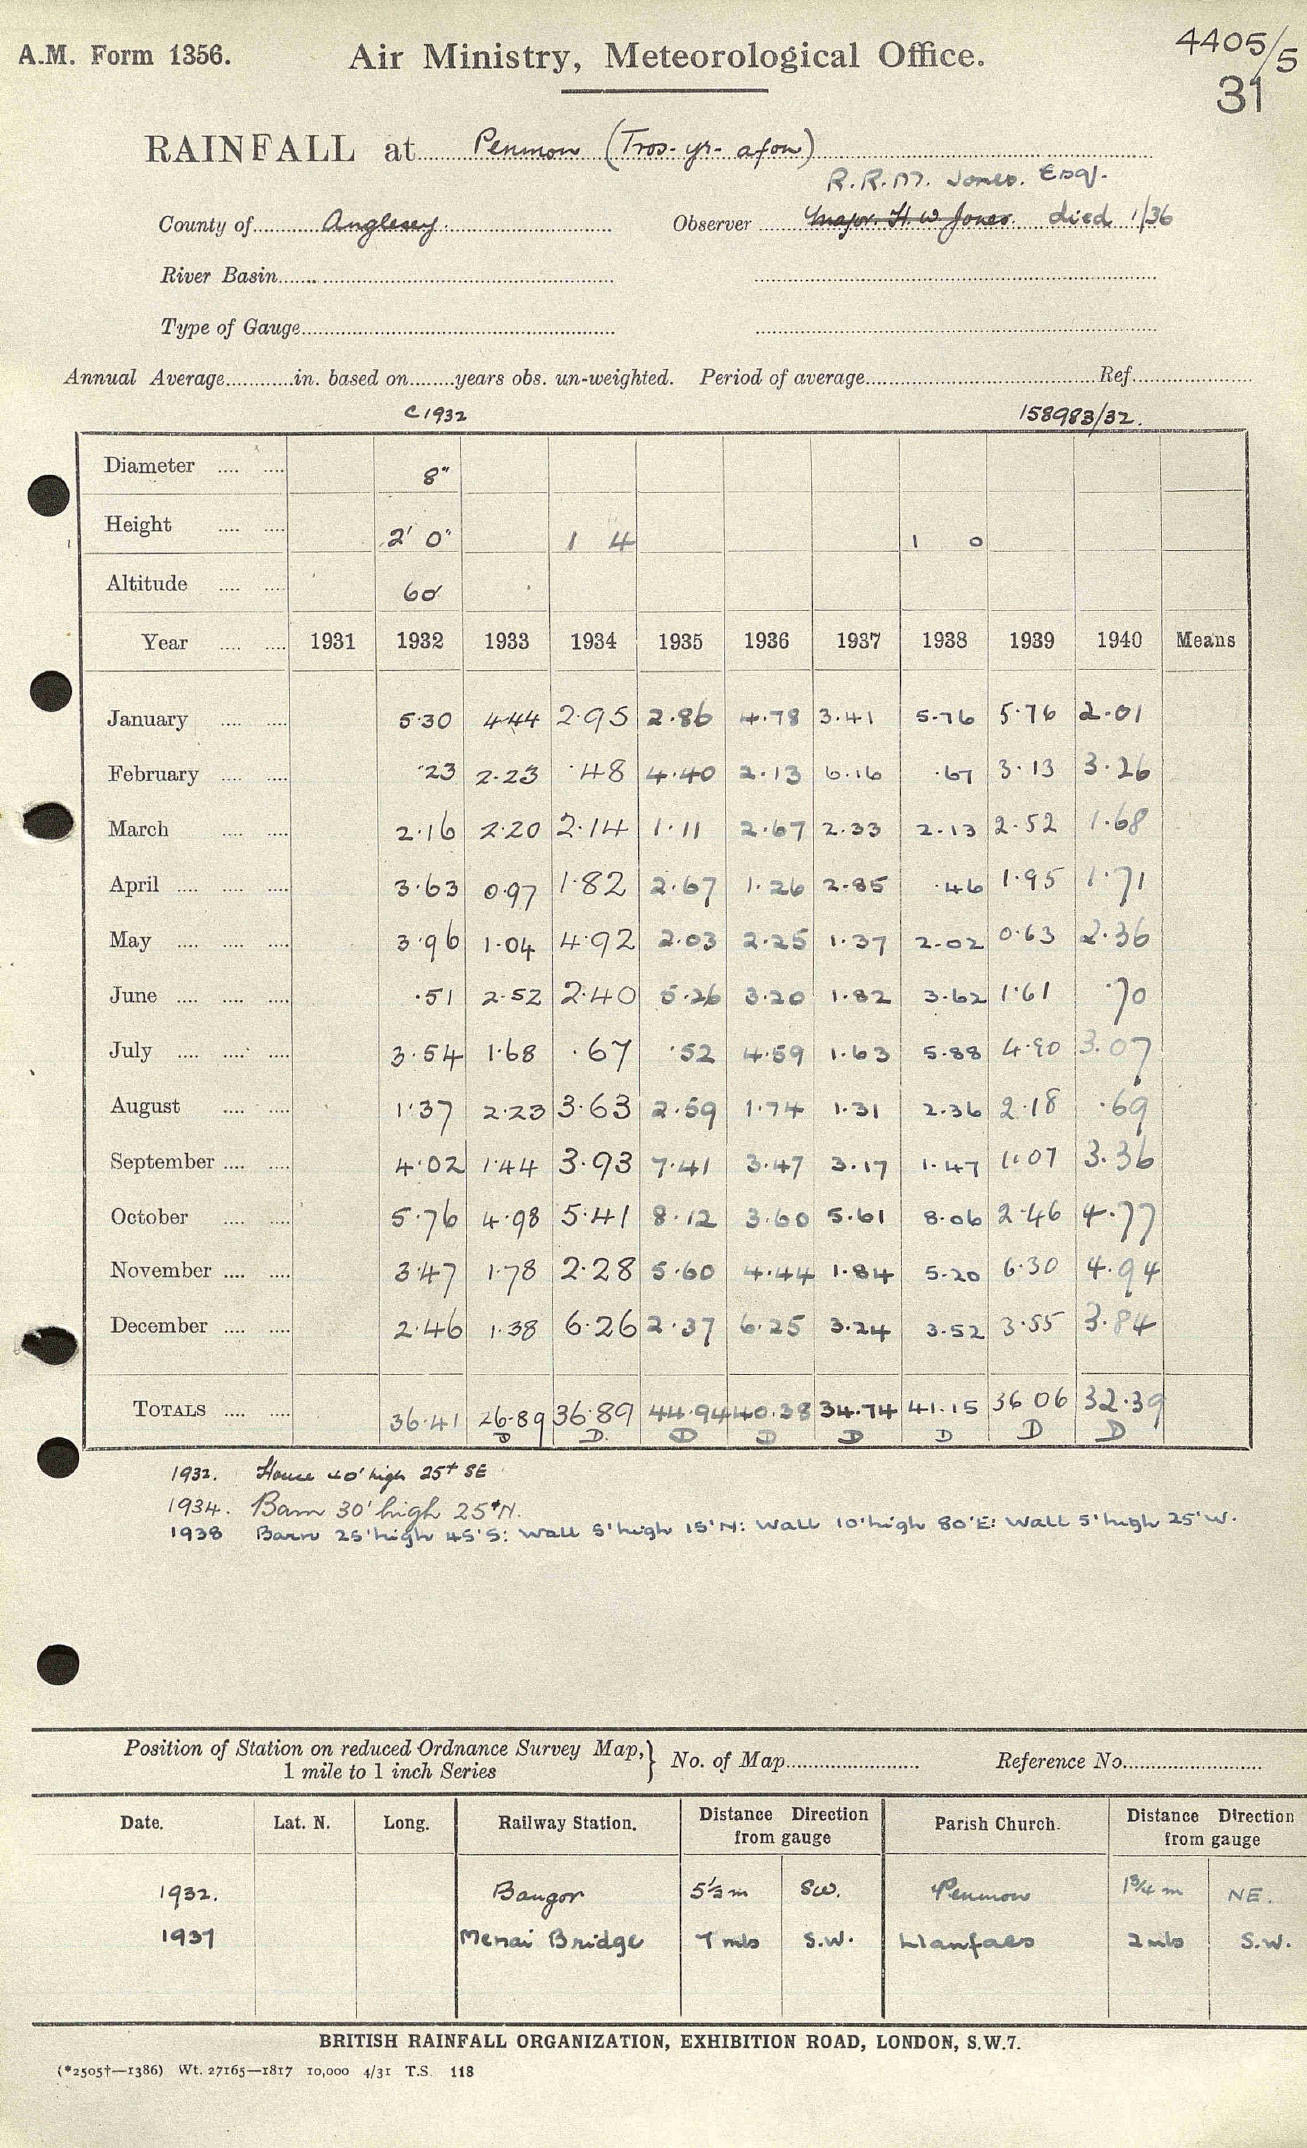 A.M. Form 1356. Air Ministry, Meteorological Office. 4405/5
31
RAINFALL at Penmon (Tros-yr-afon)
R.R.M. Jones. Esq.
County of Anglesey. Observer Major. H. W. Jones. died 1/36
River Basin
Type of Gauge
Annual Average in. based on years obs. un-weighted. Period of average Ref.
c1932 158983/32.
Diameter 8"
Height 2' 0" 1 4 1 0
Altitude 60'
Year 1931 1932 1933 1934 1935 1936 1937 1938 1939 1940 Means
January 5.30 4.44 2.95 2.86 4.78 3.41 5.76 5.76 2.01
February .23 2.23 .48 4.40 2.13 6.16 .67 3.13 3.26
March 2.16 2.20 2.14 1.11 2.67 2.33 2.13 2.52 1.68
April 3.63 0.97 1.82 2.67 1.26 2.85 .46 1.95 1.71
May 3.96 1.04 4.92 2.03 2.25 1.37 2.02 0.63 2.36
June .51 2.52 2.40 5.26 3.20 1.82 3.62 1.61 .70
July 3.54 1.68 .67 .52 4.59 1.63 5.88 4.90 3.07
August 1.37 2.23 3.63 2.59 1.74 1.31 2.36 2.18 .69
September 4.02 1.44 3.93 7.41 3.47 3.17 1.47 1.07 3.36
October 5.76 4.98 5.41 8.12 3.60 5.61 8.06 2.46 4.77
November 3.47 1.78 2.28 5.60 4.44 1.84 5.20 6.30 4.94
December 2.46 1.38 6.26 2.37 6.25 3.24 3.52 3.55 3.84
TOTALS 36.41 26.89 36.89 44.94 40.38 34.74 41.15 36 06 32.39
D D D D D D D D
1932. House 40' high 25+ SE
1934. Barn 30' high 25+ N.
1938 Barn 25' high 45' S: Wall 5' high 15' N: Wall 10' high 80' E: Wall 5' high 25' W.
Position of Station on reduced Ordnance Survey Map, 1 mile to 1 inch Series } No. of Map Reference No.
Date. Lat. N. Long. Railway Station. Distance Direction from gauge Parish Church. Distance Direction from gauge
1932. Bangor 5½ m SW. Penmon 1¾ m NE.
1937 Menai Bridge 7 mls S.W. Llanfaes 2 mls S.W.
BRITISH RAINFALL ORGANIZATION, EXHIBITION ROAD, LONDON, S.W.7.
(*2505†—1386) Wt. 27165—1817 10,000 4/31 T.S. 118